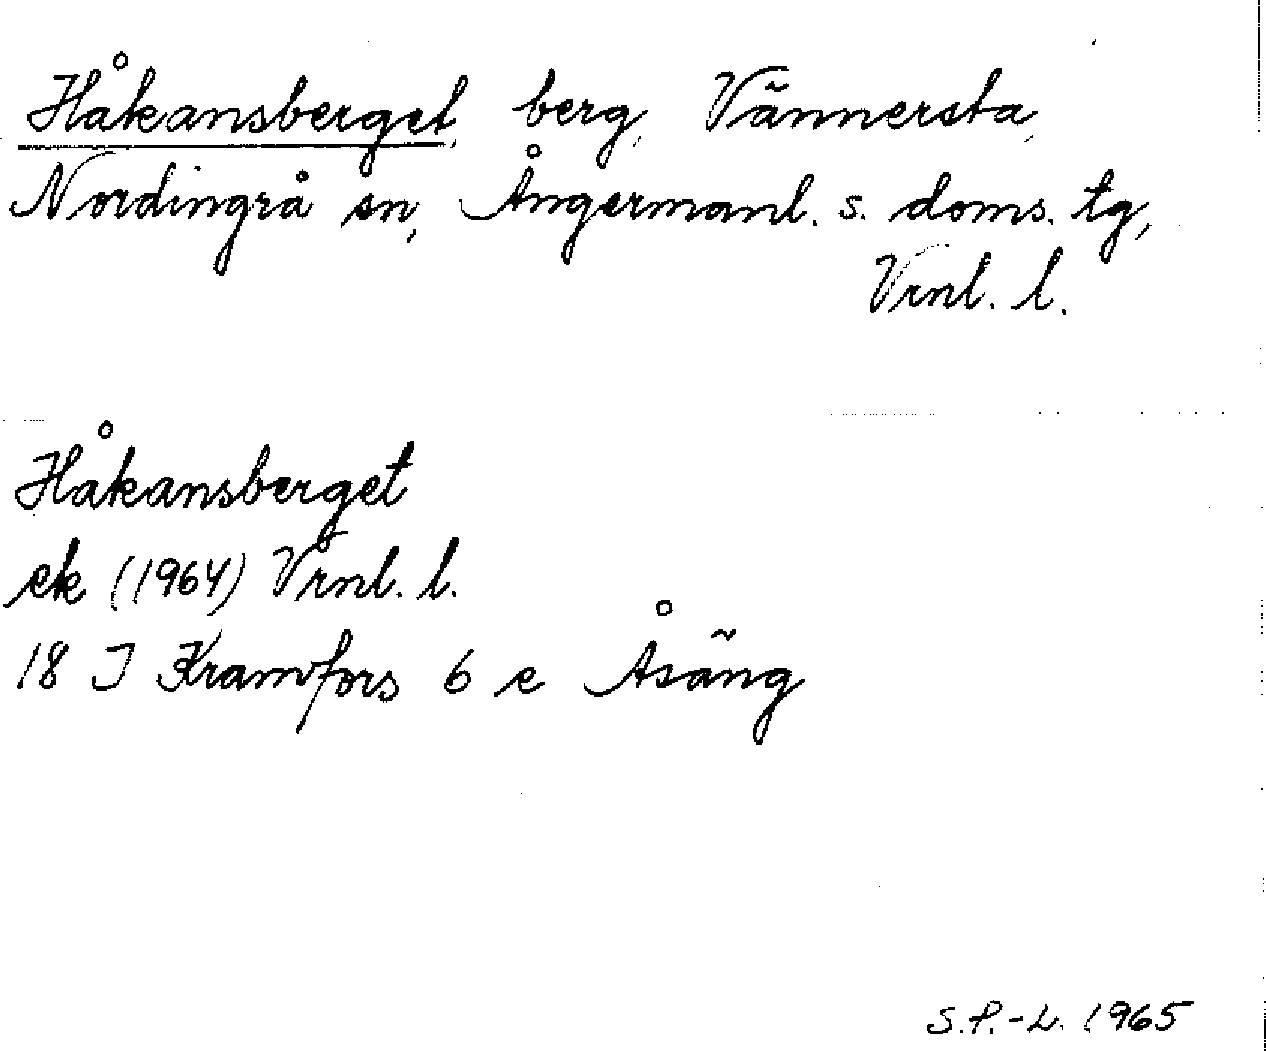 Håkansberget, berg, Vännersta,
Nordingrå sn, Ångermanl. s. doms. tg,
Vrnl. l.
Håkansberget
ek (1964) Vrnl. l.
18 J Kramfors 6 e Åsäng
S.P.-L. 1965